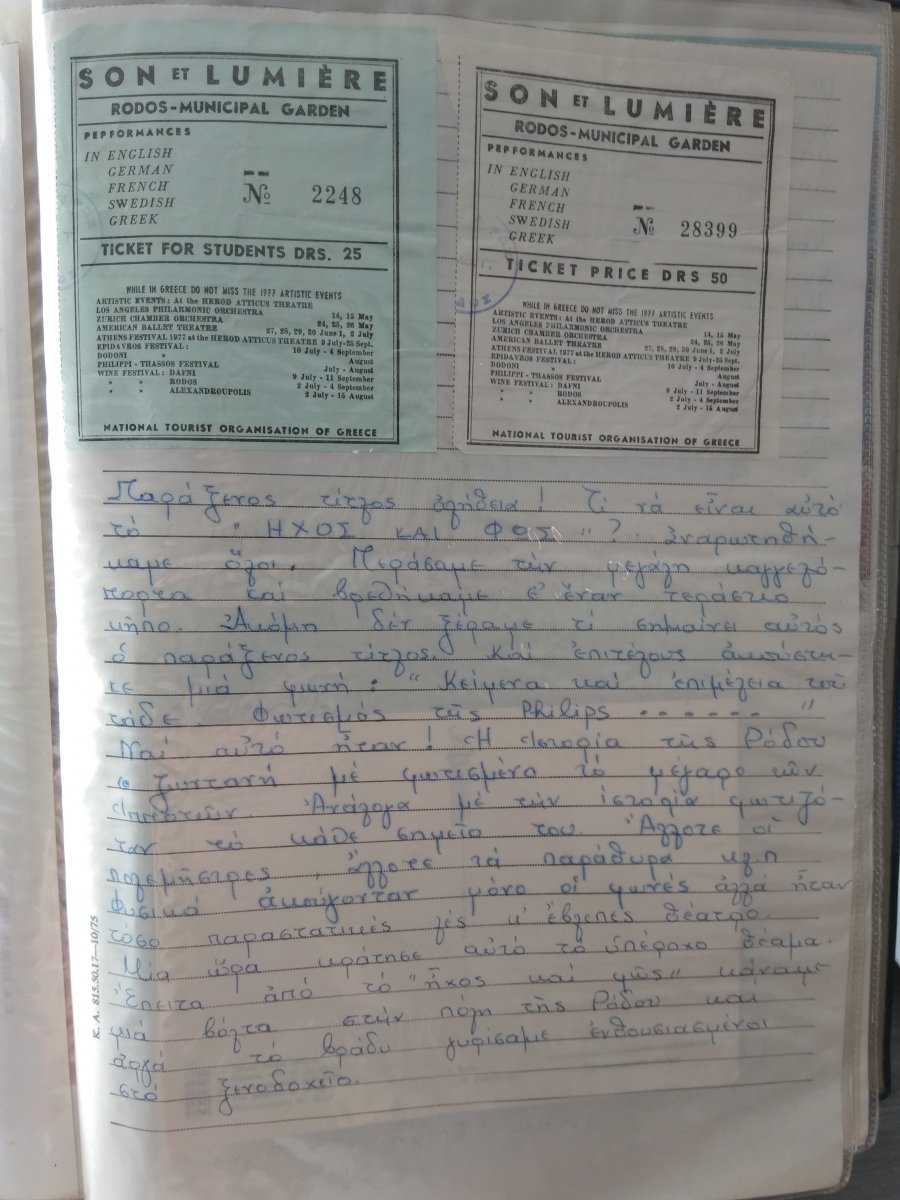 SON ET LUMIÈRE
RODOS-MUNICIPAL GARDEN
PEPFORMANCES
IN ENGLISH
GERMAN
FRENCH
SWEDISH
GREEK
№ 2248
TICKET FOR STUDENTS DRS. 25
WHILE IN GREECE DO NOT MISS THE 1977 ARTISTIC EVENTS
ARTISTIC EVENTS: At the HEROD ATTICUS THEATRE
LOS ANGELES PHILARMONIC ORCHESTRA 14, 15 May
ZURICH CHAMBER ORCHESTRA 24, 25, 26 May
AMERICAN BALLET THEATRE 27, 28, 29, 30 June 1, 2 July
ATHENS FESTIVAL 1977 at the HEROD ATTICUS THEATRE 9 July-25 Sept.
EPIDAVROS FESTIVAL: 10 July - 4 September
DODONI » August
PHILIPPI - THASSOS FESTIVAL July - August
WINE FESTIVAL: DAFNI 9 July - 11 September
» » RODOS 2 July - 4 September
» » ALEXANDROUPOLIS 2 July - 15 August
NATIONAL TOURIST ORGANISATION OF GREECE
SON ET LUMIÈRE
RODOS-MUNICIPAL GARDEN
PEPFORMANCES
IN ENGLISH
GERMAN
FRENCH
SWEDISH
GREEK
№ 28399
TICKET PRICE DRS 50
WHILE IN GREECE DO NOT MISS THE 1977 ARTISTIC EVENTS
ARTISTIC EVENTS: At the HEROD ATTICUS THEATRE
LOS ANGELES PHILARMONIC ORCHESTRA 14, 15 May
ZURICH CHAMBER ORCHESTRA 24, 25, 26 May
AMERICAN BALLET THEATRE 27, 28, 29, 30 June 1, 2 July
ATHENS FESTIVAL 1977 at the HEROD ATTICUS THEATRE 9 July-25 Sept.
EPIDAVROS FESTIVAL: 10 July - 4 September
DODONI » August
PHILIPPI - THASSOS FESTIVAL July - August
WINE FESTIVAL: DAFNI 9 July - 11 September
» » RODOS 2 July - 4 September
» » ALEXANDROUPOLIS 2 July - 15 August
NATIONAL TOURIST ORGANISATION OF GREECE
Παράξενος τίτλος ἀλήθεια! Τί νά εἶναι αὐτό
τό "ΗΧΟΣ ΚΑΙ ΦΩΣ"? ἀναρωτηθή-
καμε ὅλοι. Περάσαμε τήν μεγάλη καγγελό-
πορτα καί βρεθήκαμε σ' ἕναν τεράστιο
κῆπο. Ἀκόμη δέν ξέραμε τί σημαίνει αὐτός
ὁ παράξενος τίτλος. Καί ἐπιτέλους ἀκούστη-
κε μιά φωνή: "Κείμενα καί ἐπιμέλεια τοῦ
τάδε. Φωτισμός τῆς Philips ------- "
Ναί αὐτό ἦταν! Ἡ ἱστορία τῆς Ρόδου
ζωντανή μέ φωτισμένο τό μέγαρο τῶν
ἱπποτῶν. Ἀνάλογα μέ τήν ἱστορία φωτιζό-
ταν τό κάθε σημεῖο του. Ἄλλοτε οἱ
πολεμῆστρες, ἄλλοτε τά παράθυρα κλπ
Φυσικά ἀκούγονταν μόνο οἱ φωνές ἀλλά ἦταν
τόσο παραστατικές λές κ' ἔβλεπες θέατρο.
Μία ὥρα κράτησε αὐτό τό ὑπέροχο θέαμα.
Ἔπειτα ἀπό τό "ἦχος καί φῶς" κάναμε
μιά βόλτα στήν πόλη τῆς Ρόδου καί
ἀργά τό βράδυ γυρίσαμε ἐνθουσιασμένοι
στό ξενοδοχεῖο.
Κ.Α. 815.50.17—10/75